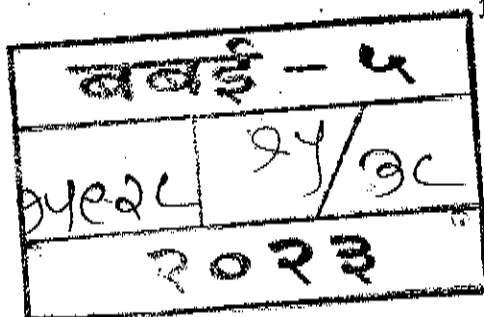 बबई - ५
१५९२८ १५/३८
२०२३